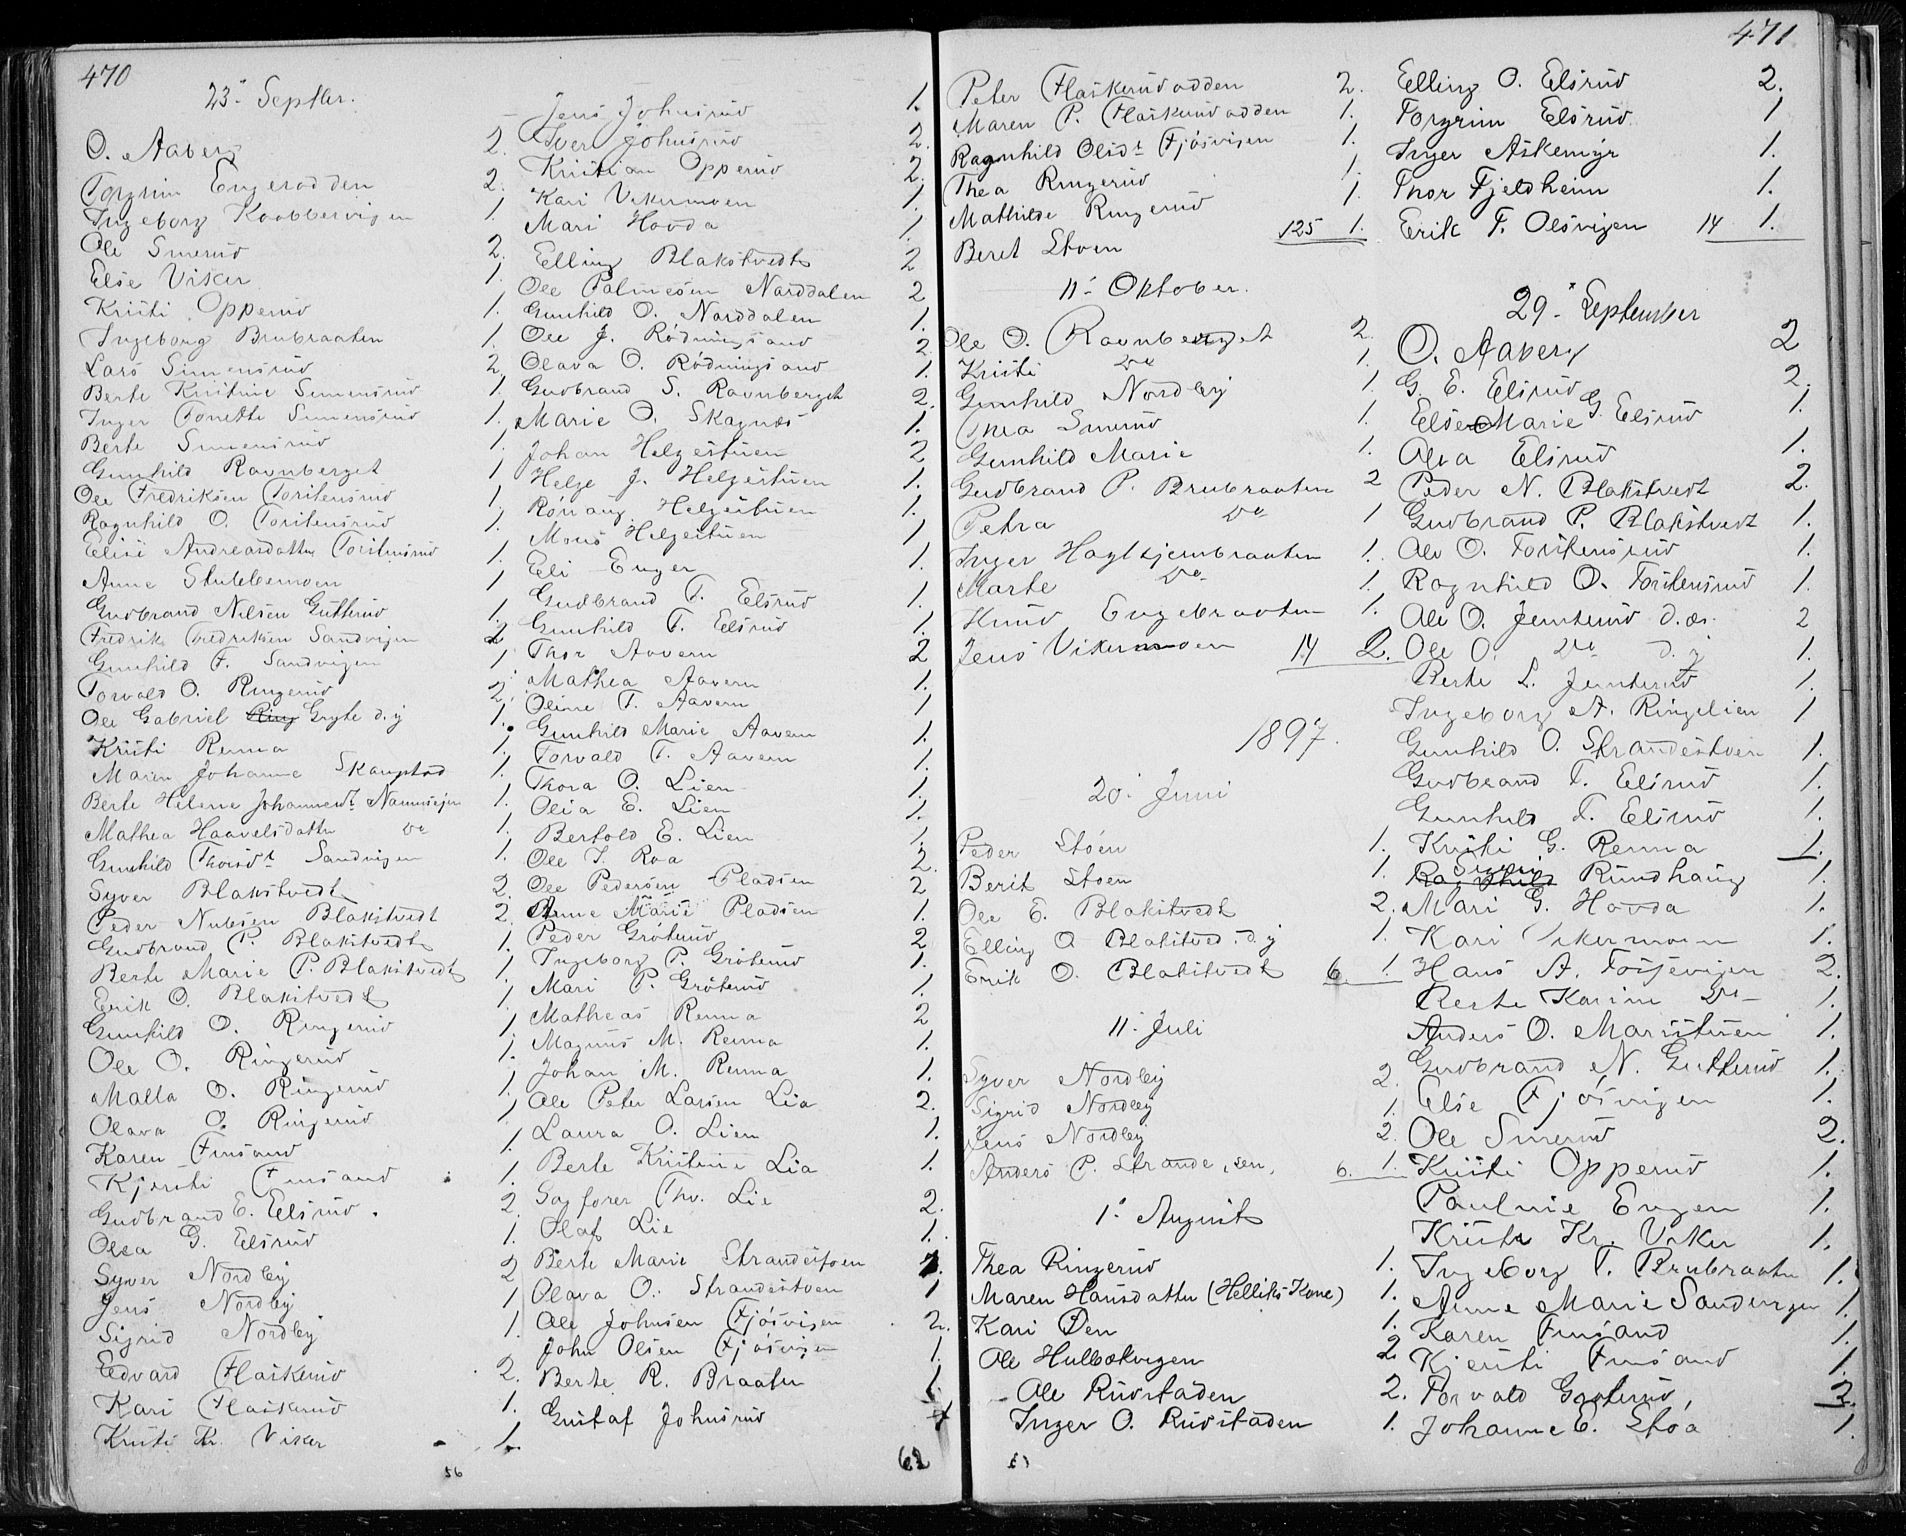 470
23' Septbr.
O. Aaberg 2.
Torgrim Engerodden 2.
Ingeborg Kaabbervigen 1.
Ole Smerud 2.
Else Viker 1.
Kristi Opperud 1.
Ingeborg Brubraaten 1.
Lars Simensrud 2.
Berte Kristine Simensrud 1.
Inger Tonette Simensrud 1.
Berte Simensrud 1.
Gunhild Ravnberget 1
Ole Fredriksen Torstensrud 1.
Ragnhild O. Torstensrud 1.
Elise Andreasdatter Torstensrud 1.
Anne Stubbermoen 1
Gudbrand Nilsen Gutterud 1.
Fredrik Fredriksen Sandvigen 2
Gunhild F. Sandvigen 1
Torvald O. Ringerud 2.
Ole Gabriel Gryte d.y 1.
Kristi Renna 1
Maren Johanne Skaugstad 1.
Berte Helene Johannesdt 1.
Mathea Haavelsdatter do 1.
Gunhild Thorsdt Sandvigen 1.
Syver Blakstvedt 2.
Peder Nubsen Blakstvedt 2.
Gudbrand P. Blakstvedt 1.
Berte Marie P. Blakstvedt 1
Erik O. Blakstvedt 1
Gunhild O. Ringerud 1
Ole O. Ringerud 1.
Malla O. Ringerud 1
Olava O. Ringerud 1
Karen Finsand 1.
Kjersti Finsand 1.
Gudbrand E. Elsrud. 2
Olea G. Elsrud 1.
Syver Nordby 2
Jens Nordby 1
Sigrid Nordby 1.
Edvard Flaskerud 2.
Kari Flaskerud 1.
Kristi Kr. Viker 1.
56
Jens Johnsrud 1.
Iver Johnsrud 2.
Kristian Opperud 2.
Kari Vikermoen 1
Mari Hovda 1.
Elling Blakstvedt 2
Ole Palmesen Narddalen 2
Gunhild O. Narddalen 1.
Ole J. Rødningsand 2
Olava O. Rødningsand 1.
Gudbrand S. Ravnberget 2.
Marie O. Skagnæs 1.
Johan Helgestuen 2
Helge J. Helgestuen 1.
Rønaug Helgestuen 1.
Mons Helgestuen 1
Eli Enger 1.
Gudbrand T. Elsrud 1.
Gunhild T. Elsrud 1.
Thor Aavern 2
Mathea Aavern 1.
Oline T. Aavern 1
Gunhild Marie Aavern 1.
Torvald T. Aavern 1.
Thora O. Lien 1.
Olia E. Lien 1.
Bertold E. Lien 1.
Ole T. Roa 2.
Ole Pedersen Pladsen 2
Anne Marie Pladsen 1.
Peder Grøterud 2
Ingeborg P. Grøterud 1.
Mari P. Grøterud 1
Matheas Renna 2
Magnus M. Renna 1.
Johan M. Renna 1.
Ole Peter Larsen Lia 2.
Laura O. Lien 1.
Berte Kristine Lia 1.
Sagfører Thv. Lie 2.
Olaf Lie 1.
Berte Marie Strandestoen 1.
Olava O. Strandestoen 1
Ole Johnsen Fjøsvigen 2.
John Olsen Fjøsvigen 1.
Berte R. Braaten 1
Gustaf Johnsrud 1
62
471
Peter Flaskerudodden 2.
Maren P. Flaskerudodden 1.
Ragnhild Olsdt Fjøsvigen 1.
Thea Ringerud 1.
Mathilde Ringerud 1.
Beret Stoen 125 1.
11' Oktober.
Ole O. Ravnberget 2.
Kristi do 1.
Gunhild Nordby 1.
Thea Smerud 1.
Gunhild Marie 1.
Gudbrand P. Brubraaten 2
Petra do 1
Inger Hagltjernbraaten 1.
Marte do 1.
Knud Engebraaten 1.
Jens Vikermoen 14 2.
1897.
20' Juni
Peder Støen 1.
Berit Støen 1.
Ole E. Blakstvedt 2.
Elling O Blakstved. d.y 1.
Erik O. Blakstvedt 6. 1.
11' Juli
Syver Nordby 2.
Sigrid Nordby 1.
Jens Nordby 2.
Anders P. 6. 1.
1' August
Thea Ringerud 1.
Maren Hansdatter (Helliks Kone) 1.
Kari Øen 1.
Ole Hulbækvigen 2
Ole Rudstaden 2.
Inger O. Rudstaden 1.
Elling O. Elsrud 2.
Torgrim Elsrud 1
Inger Askemyr 1.
Thor Fjeldheim 1.
Erik F. Olsvigen 14 1.
29' September
O. Aaberg 2
G. E. Elsrud 2.
Else Marie G. Elsrud 1.
Olea Elsrud 1.
Peder N. Blakstvedt 2.
Gudbrand P. Blakstvedt 1.
Ole O. Torstensrud 1.
Ragnhild O. Torstensrud 1.
Ole O. Jemterud d.æ. 2
Ole O. do d.y 1.
Berte L. Jemterud 1.
Ingeborg A. Ringelien 1
Gunhild O. Strandestoen 1.
Gudbrand T. Elsrud 1.
Gunhild T. Elsrud 1.
Kristi G. Renna 1.
Rundhaug 1.
Mari G. Hovda 1.
Kari Vikermoen 1.
Hans A. Fosjevigen 2.
Berte Karine do 1.
Anders O. Maristuen 1.
Gudbrand N. Gutterud 1.
Else Fjøsvigen 1.
Ole Smerud 2.
Kristi Opperud 1.
Pauline Engen 1.
Kristi Kr. Viker 1.
Ingeborg T. Brubraaten 1.
Anne Marie Sandvigen 1
Karen Finsand 1.
Kjersti Finsand 1.
Torvald Grøterud, 2.
Johanne E. Stoa 1.